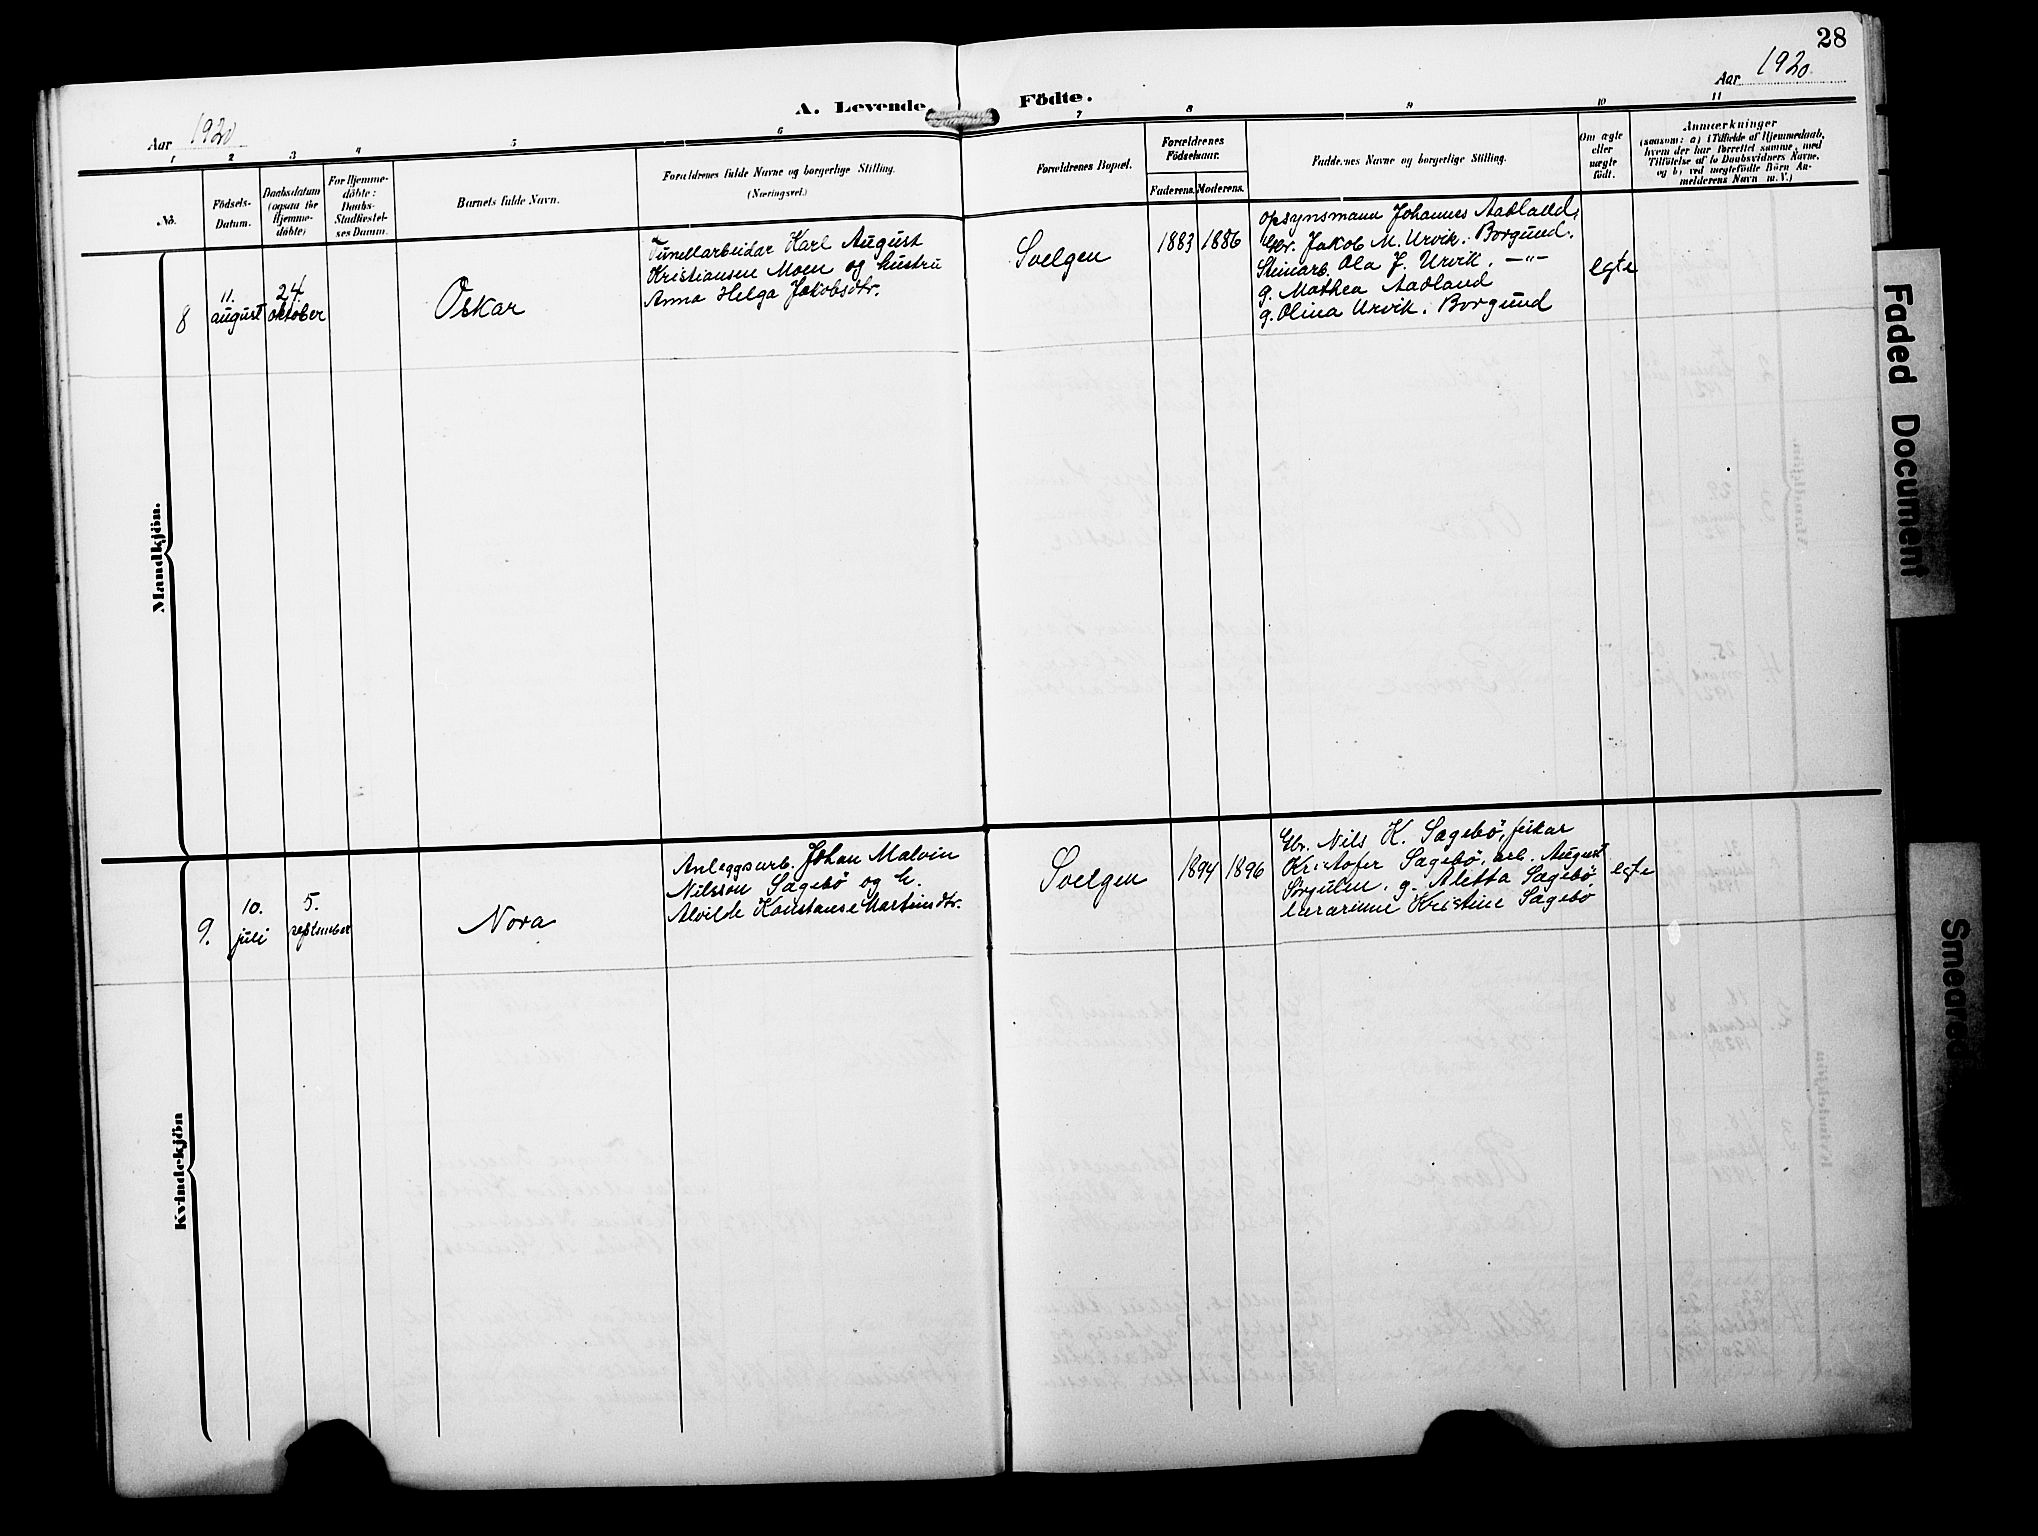 28
Aar 1920
Aar 1920
A. Levende Födte.
1 2 3 4 5 6 7 8 9 10 11
No.
Födsels-
Datum.
Daabsdatum
(ogsaa for
Hjemme-
döbte)
For Hjemme-
döbte:
Daabs-
Stadfæstel-
ses Datum.
Barnets fulde Navn.
Forældrenes fulde Navne og borgerlige Stilling.
(Næringsvei.)
Forældrenes Bopæl.
Forældrenes
Födselsaar.
Faderens. Moderens.
Faddernes Navne og borgerlige Stilling.
Om ægte
eller
uægte
födt.
Anmærkninger
(saasom: a) i Tilfælde af Hjemmedaab,
hvem der har forrettet samme, med
Tilföielse af to Daabsvidners Navne,
og b) ved uægtefödte Börn An-
melderens Navn m. V.)
Mandkjön.
8
11.
august
24.
oktober
Oskar
Tunellarbeidar Karl August
Kristiansen Moen og hustru
Anna Helga Jakobsdtr.
Svelgen
1883 1886
Opsynsmann Johannes Aadland,
Gbr. Jakob M. Urvik. Borgund.
Steinarb. Ola J. Urvik. -"-
g. Mathea Aadland
g. Olina Urvik. Borgund
egte
Kvindekjön
9.
10.
juli
5.
september
Nora
Anleggsarb. Johan Malvin
Nilsson Sagebö og h.
Alvilde Konstanse Martinsdtr.
Svelgen
1894 1896
Gbr. Nils K. Sagebö, fiskar
Kristofer Sagebö, arb. August
Sörgulen, g. Aletta Sagebö
lærarinne Kristine Sagebö
egte
Faded Document
Smeared